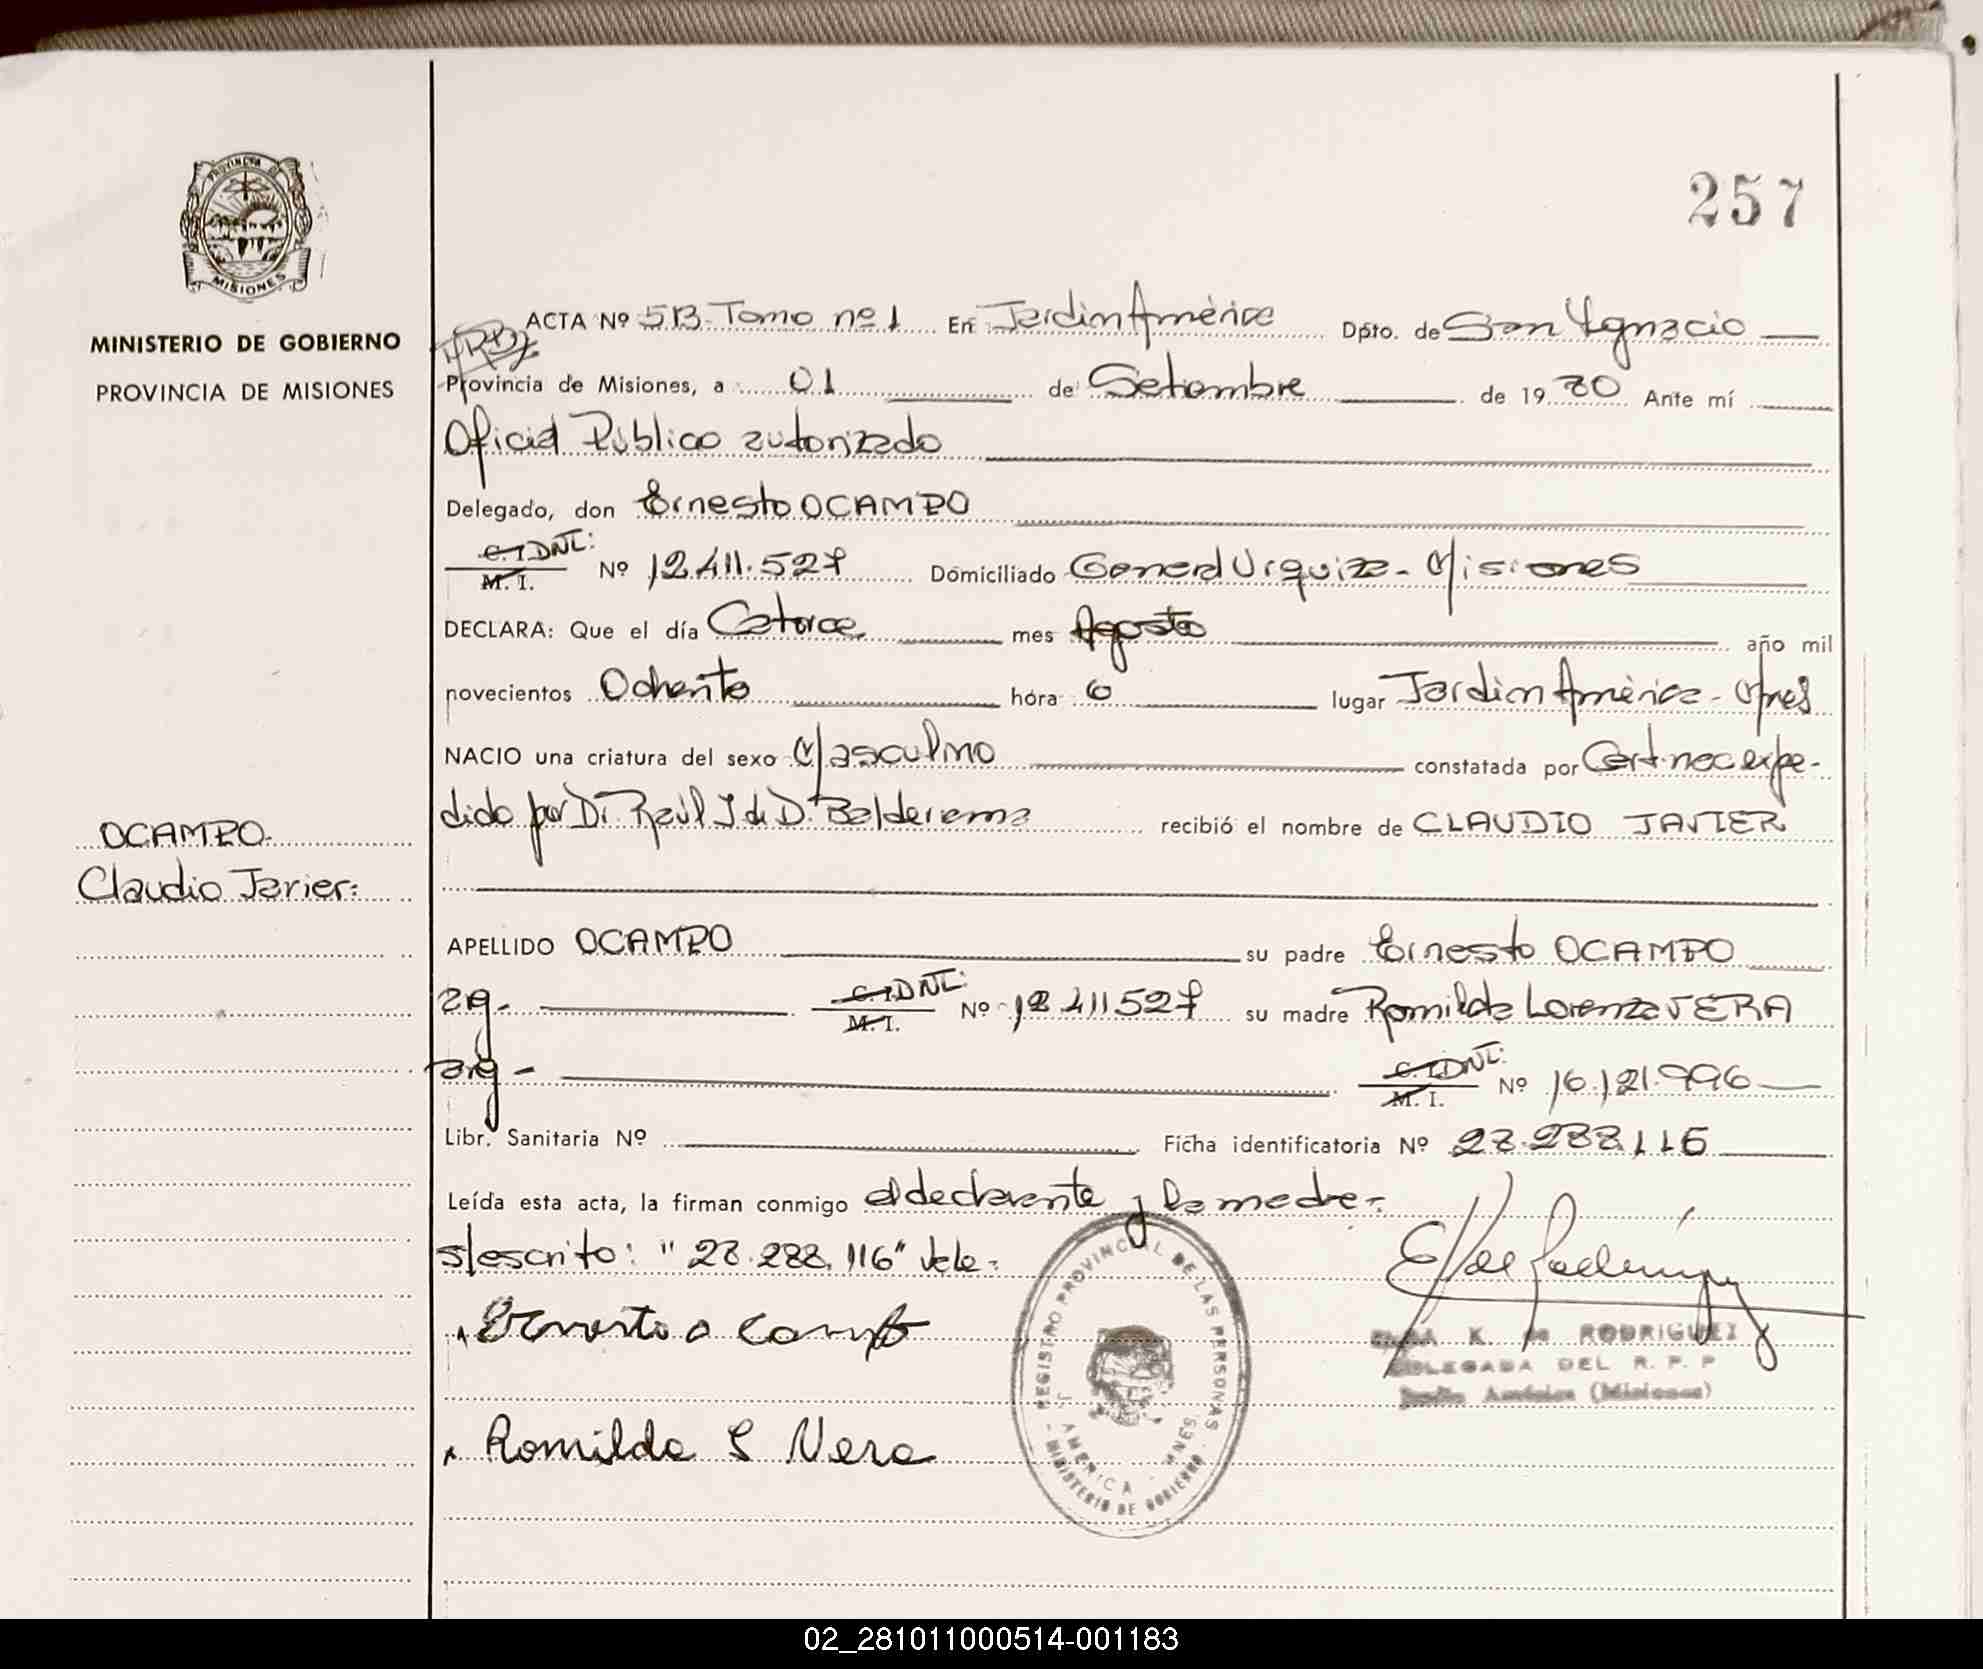 PROVINCIA DE
MISIONES
MINISTERIO DE GOBIERNO
PROVINCIA DE MISIONES
257
ACTA Nº 513 Tomo nº 1 En Jardin América Dpto. de San Ygnacio
Provincia de Misiones, a 01 de Setiembre de 19 80 Ante mí
Oficial Público autorizado
Delegado, don Ernesto OCAMPO
C.I. DNI: M. I. Nº 12.411.527 Domiciliado General Urquiza - Misiones
DECLARA: Que el día Catorce mes Agosto año mil
novecientos Ochenta hora 6 lugar Jardin América - Mnes
NACIO una criatura del sexo Masculino constatada por Cert. nac expe-
dido por Dr. Raúl J de D. Balderrama recibió el nombre de CLAUDIO JAVIER
OCAMPO
Claudio Javier:
APELLIDO OCAMPO su padre Ernesto OCAMPO
arg - C.I. DNI: M. I. Nº 12.411.527 su madre Romilda Lorenza VERA
arg - C.I. DNI: M. I. Nº 16.121.996
Libr. Sanitaria Nº Ficha identificatoria Nº 28.288.116
Leída esta acta, la firman conmigo el declarante y la madre-
s/escrito: "28.288.116" Vale-
Ernesto ocampo
Romilda L Vera
REGISTRO PROVINCIAL DE LAS PERSONAS
J. AMERICA - MNES
MINISTERIO DE GOBIERNO
K. de RODRIGUEZ
DELEGADA DEL R. P. P
Jardín América (Misiones)
02_281011000514-001183